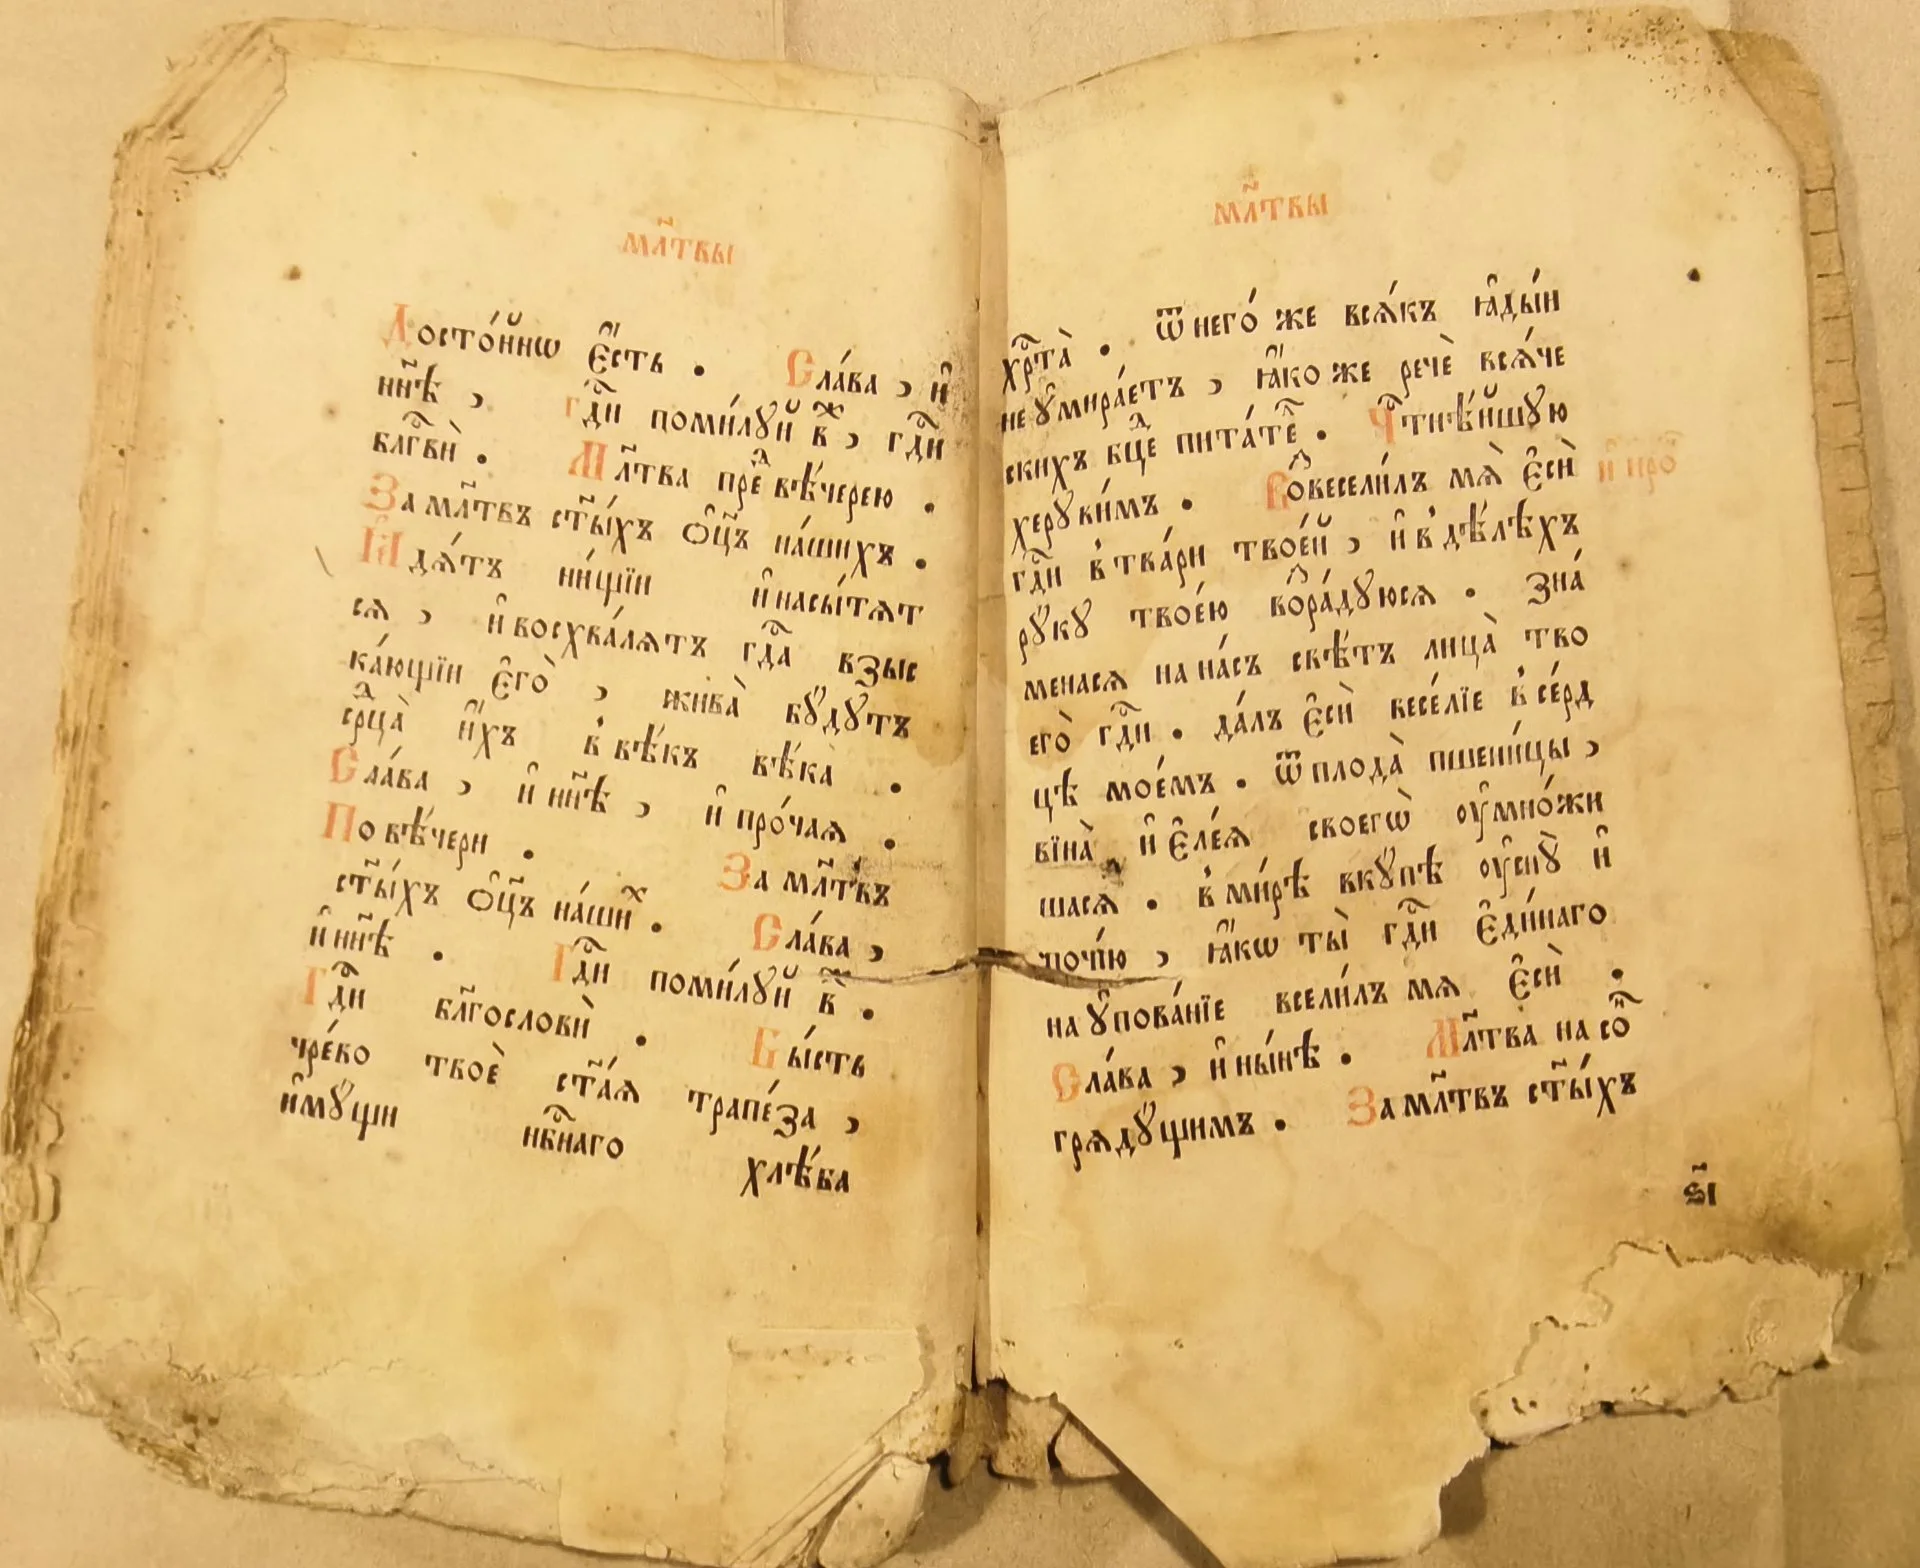 мл҃твы
Досто́йнѡ є҆́сть . Сла́ва , и҆
нн҃ѣ , гдⷭ҇и поми́лꙋй в҃ⷯ , гдⷭ҇и
блгⷭ҇вѝ . Мл҃тва преⷣ вѣ́черею .
За мл҃твъ ст҃ы́хъ ѻ҆ц҃ъ на́шихъ .
Ꙗ҆дѧ́тъ ни́щїи и҆ насы́тѧт
сѧ , и҆ восхва́лѧтъ гдⷭ҇а взыс
ка́ющїи є҆го̀ , жива̀ бꙋ́дꙋтъ
срⷣца̀ и҆́хъ в̾ вѣ́къ вѣ́ка .
Сла́ва , и҆ нн҃ѣ , и҆ про́чаѧ .
По вѣ́чери . За мл҃твъ
ст҃ы́хъ ѻ҆ц҃ъ на́шиⷯ . Сла́ва ,
и҆ нн҃ѣ . Гдⷭ҇и поми́лꙋй в҃ⷯ .
Гдⷭ҇и бл҃гословѝ . Бы́сть
чре́ко твоѐ ст҃а́ѧ трапе́за ,
и҆мꙋ́щи нбⷭ҇наго хлѣ́ба
мл҃твы
хрⷭ҇та̀ . Ѿ него́ же всѧ́къ ꙗ҆ды́и
не ꙋ҆мира́етъ , ꙗ҆́ко же речѐ всѧ́че
скихъ бцⷣе пита́теⷧ . Чⷭ҇тнѣ́йшꙋю
херꙋви́мъ . Во҆весели́лъ мѧ̀ є҆сѝ
и҆ проⷭ
гдⷭ҇и в̾ тва́ри твое́й , и҆ в̾ дѣ́лѣхъ
рꙋ́кꙋ твое́ю во҆ра́дꙋюсѧ . Зна́
менасѧ на на́съ свѣ́тъ лица̀ тво
его̀ гдⷭ҇и . да́лъ є҆сѝ весе́лїе в̾ се́рд
цѣ мое́мъ . Ѿ плода̀ пшени́цы ,
вїна̀ и҆ є҆ле́ѧ своегѡ̀ ѹ҆мно́жи
шасѧ . в̾ ми́рѣ вкꙋ́пѣ ѹ҆снꙋ̀ и҆
почі́ю , ꙗ҆́кѡ ты̀ гдⷭ҇и є҆ди́наго
на ꙋ҆пова́нїе всели́лъ мѧ є҆сѝ .
Сла́ва , и҆ ны́нѣ . Мл҃тва на соⷩ
грѧдꙋ́щимъ . За мл҃твъ ст҃ы́хъ
ѕ҃і